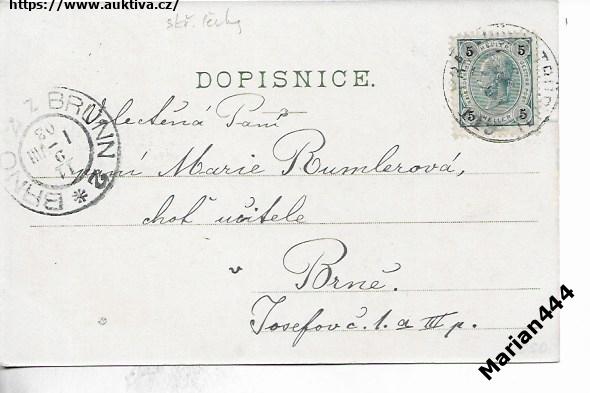 https://www.auktiva.cz/
DOPISNICE.
5 5
HELLER
5 5
BRÜNN 2
BRNO
Velectěná Paní
paní Marie Rumlerová,
choť učitele
v Brně.
Josefov č. 1. a III p.
Marian444